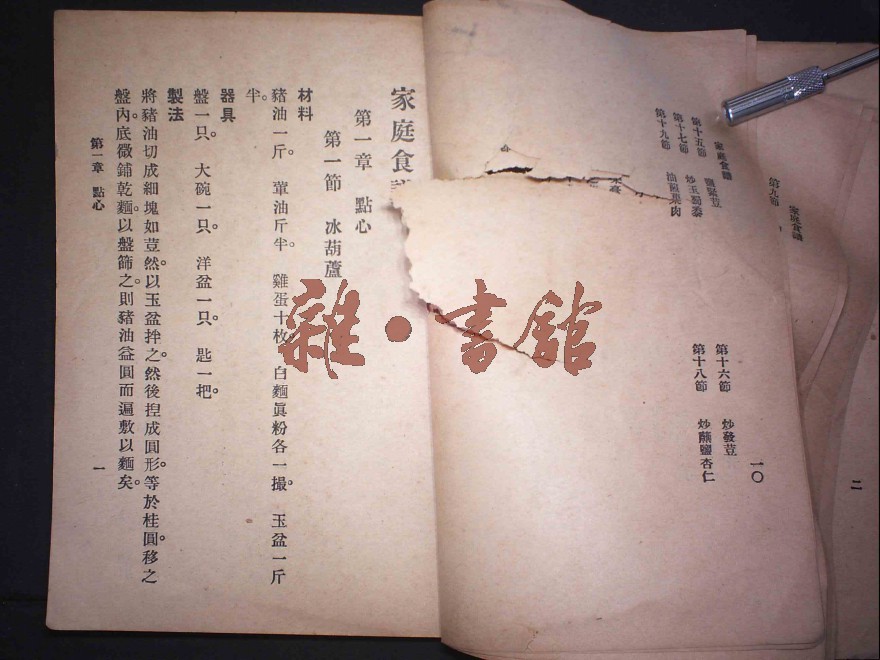 家庭食譜
第十五節　鹽緊荳
第十六節　炒發荳
第十七節　炒玉蜀黍
第十八節　炒鹽杏仁
第十九節　油果肉
一〇
家庭食譜
第九節
二
家庭食
第一章　點心
第一節　冰葫蘆
材料
豬油一斤。葷油斤半。雞蛋十枚。白麵眞粉各一撮。玉盆一斤
半。
器具
盤一只。大碗一只。洋盆一只。匙一把。
製法
將豬油切成細塊如荳。然以玉盆拌之。然後揑成圓形。等於桂圓。移之
盤內。底微鋪乾麵。以盤篩之。則豬油益圓而遍敷以麵矣。
第一章　點心
一
雜·書館